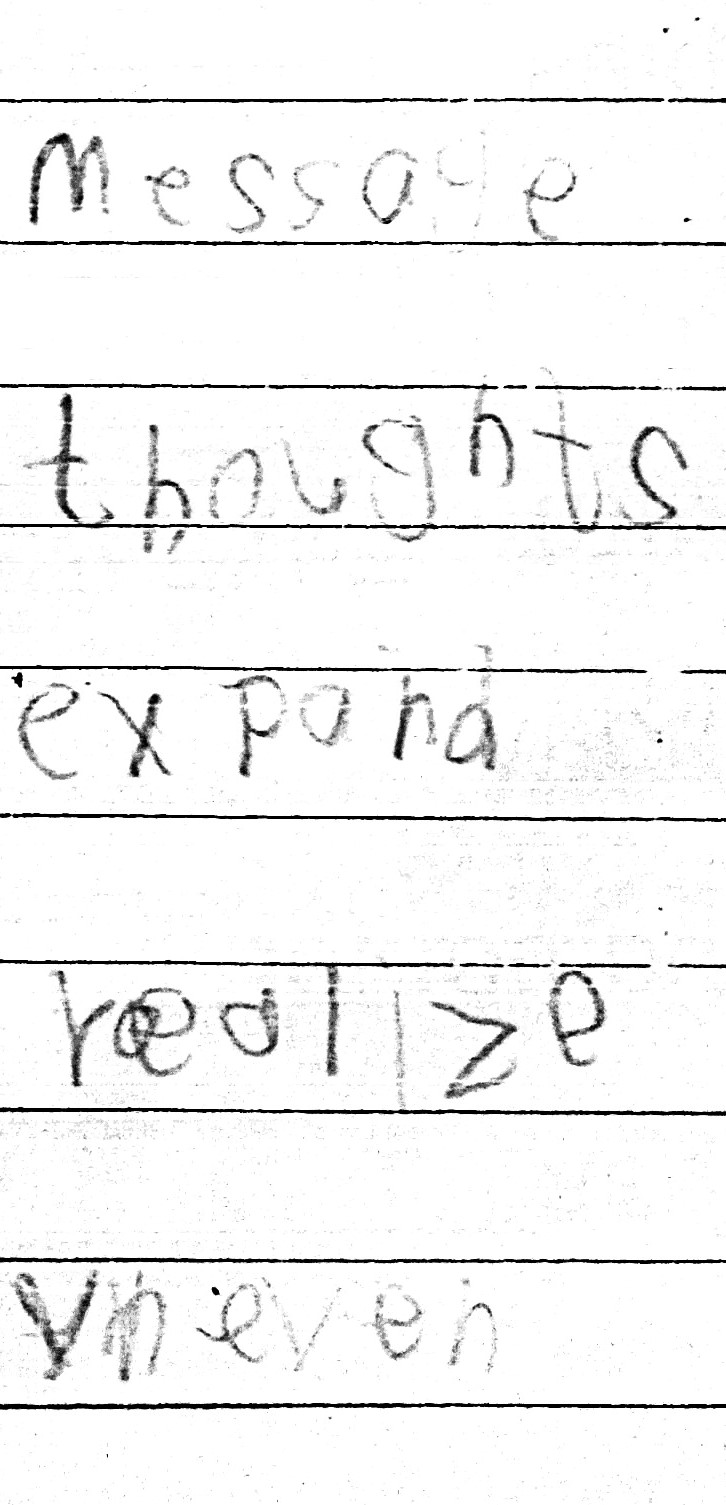 Message
thoughts
expand
realize
uneven